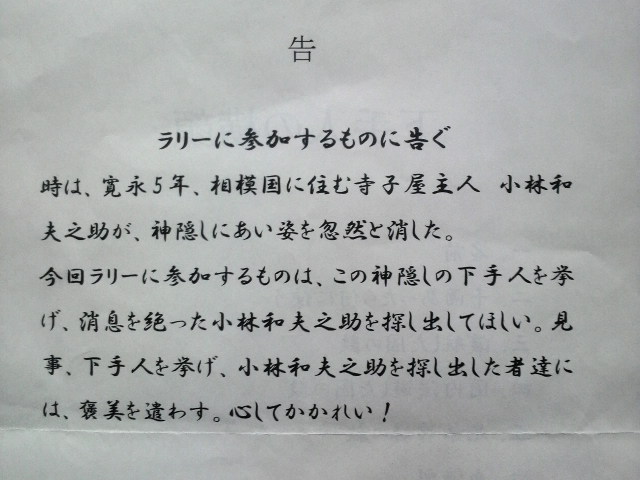 告
ラリーに参加するものに告ぐ
時は、寛永5年、相模国に住む寺子屋主人　小林和
夫之助が、神隠しにあい姿を忽然と消した。
今回ラリーに参加するものは、この神隠しの下手人を挙
げ、消息を絶った小林和夫之助を探し出してほしい。見
事、下手人を挙げ、小林和夫之助を探し出した者達に
は、褒美を遣わす。心してかかれい！